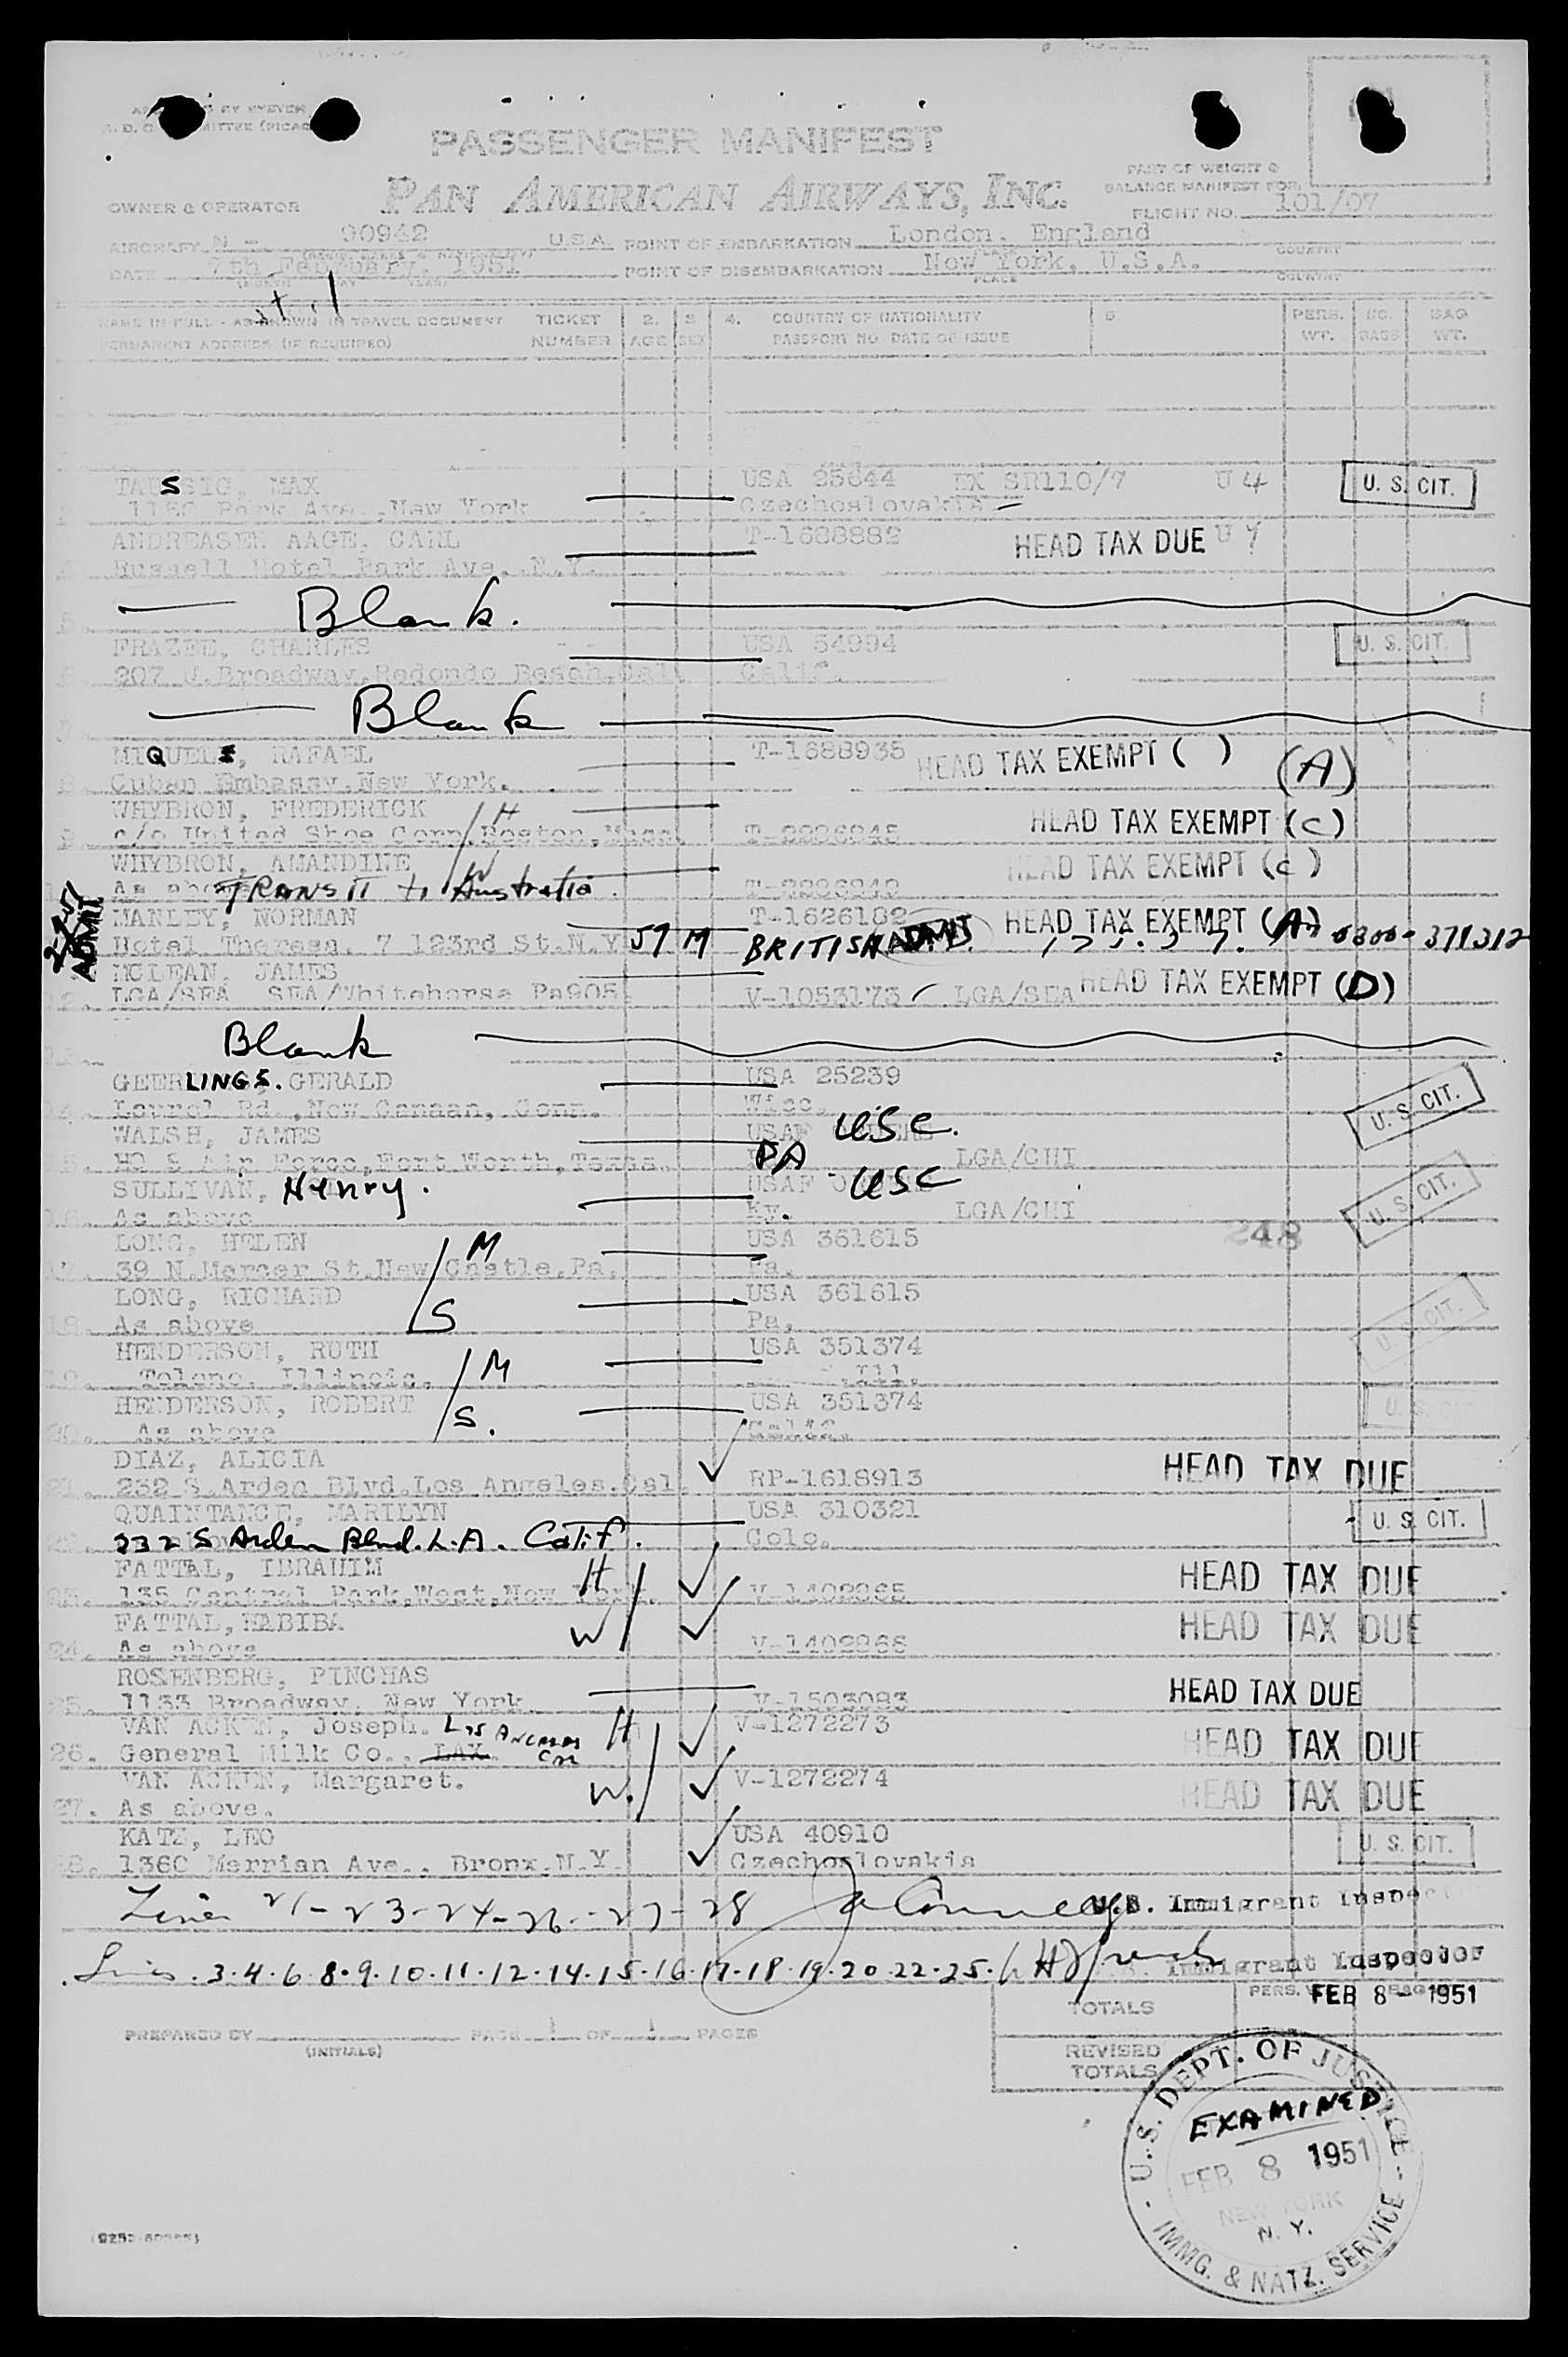 PASSENGER MANIFEST
PAN AMERICAN AIRWAYS, INC.
PART OF WEIGHT &
BALANCE MANIFEST FOR
OWNER & OPERATOR
FLIGHT NO. 101/07
AIRCRAFT N - 90942 U.S.A. POINT OF EMBARKATION London. England COUNTRY
DATE 7th February, 1951 POINT OF DISEMBARKATION New York, U.S.A.
PLACE COUNTRY
NAME IN FULL - AS SHOWN IN TRAVEL DOCUMENT TICKET 2. 3. 4. COUNTRY OF NATIONALITY 5 PERS. NO. BAG
PERMANENT ADDRESS (IF REQUIRED) NUMBER AGE SEX PASSPORT NO. DATE OF ISSUE WT. BAGS WT.
TAUSSIG, MAX USA 25644 EX SR110/7 U4 U. S. CIT.
1150 Park Ave.,New York Czechoslovakia
ANDREASEN AAGE, CARL T-1688882 HEAD TAX DUE
Russell Hotel Park Ave. N.Y.
Blank.
FRAZEE, CHARLES USA 54994 U. S. CIT.
6. 207 U.Broadway,Redondo Beach,Cal. Calif.
Blank
MIQUEL, RAFAEL T-1688935 HEAD TAX EXEMPT ( ) (A)
8. Cuban Embassy,New York.
WHYBRON, FREDERICK H HEAD TAX EXEMPT (C)
9. c/o United Shoe Corp.Boston,Mass.
WHYBRON, AMANDINE W HEAD TAX EXEMPT (C)
As above TRANSIT to Australia.
ADMIT
MANLEY, NORMAN T-1626182 HEAD TAX EXEMPT (A)
Hotel Theresa. 7 123rd St.N.Y 57 M BRITISH ADMIT 0300-371312
MCLEAN, JAMES HEAD TAX EXEMPT (D)
12. LGA/SEA SEA/Whitehorse Pa905. V-1053173 LGA/SEA
Blank
GEERLINGS. GERALD USA 25239 U. S. CIT.
14. Laurel Rd.,New Canaan, Conn. Wisc.
WALSH, JAMES USAF ORDERS USC.
15. HQ 8 Air Force,Fort Worth,Texas. PA LGA/CHI
SULLIVAN, Henry. USAF USC U. S. CIT.
16. As above Ky. LGA/CHI
LONG, HELEN M USA 361615 248
17. 39 N.Mercer St.New Castle,Pa. Pa.
LONG, RICHARD USA 361615 U. S. CIT.
18. As above S Pa,
HENDERSON, RUTH M USA 351374
19. Tolono, Illinois. Ill.
HENDERSON, ROBERT USA 351374 U. S.
20. As above S. Calif.
DIAZ, ALICIA HEAD TAX DUE
21. 232 S.Arden Blvd.Los Angeles.Cal. RP-1618913
QUAINTANCE, MARILYN USA 310321 U. S. CIT.
22. 232 S Arden Blvd. L.A. Calif. Colo.
FATTAL, IBRAHIM H HEAD TAX DUE
23. 135 Central Park,West,New York.
FATTAL,HABIBA W HEAD TAX DUE
24. As above V-1402868
ROSENBERG, PINCHAS HEAD TAX DUE
25. 1133 Broadway, New York. V-1503083
VAN ACKEN, Joseph. Los Angeles H V-1272273 HEAD TAX DUE
26. General Milk Co., LAX. Cal
VAN ACKEN, Margaret. W. V-1272274 HEAD TAX DUE
27. As above.
KATZ, LEO USA 40910 U. S. CIT.
28. 1360 Merrian Ave.. Bronx.N.Y. Czechoslovakia
Lines 21-23-24-26-27-28 U.S. Immigrant Inspector
Lines.3.4.6.8.9.10.11.12.14.15.16.17.18.19.20.22.25. Immigrant Inspector
TOTALS PERS. FEB 8 - 1951
PREPARED BY PAGE 1 OF 1 PAGES
(INITIALS)
REVISED
TOTALS
U.S. DEPT. OF JUSTICE
EXAMINED
FEB 8 1951
NEW YORK
N. Y.
IMMG. & NATZ. SERVICE